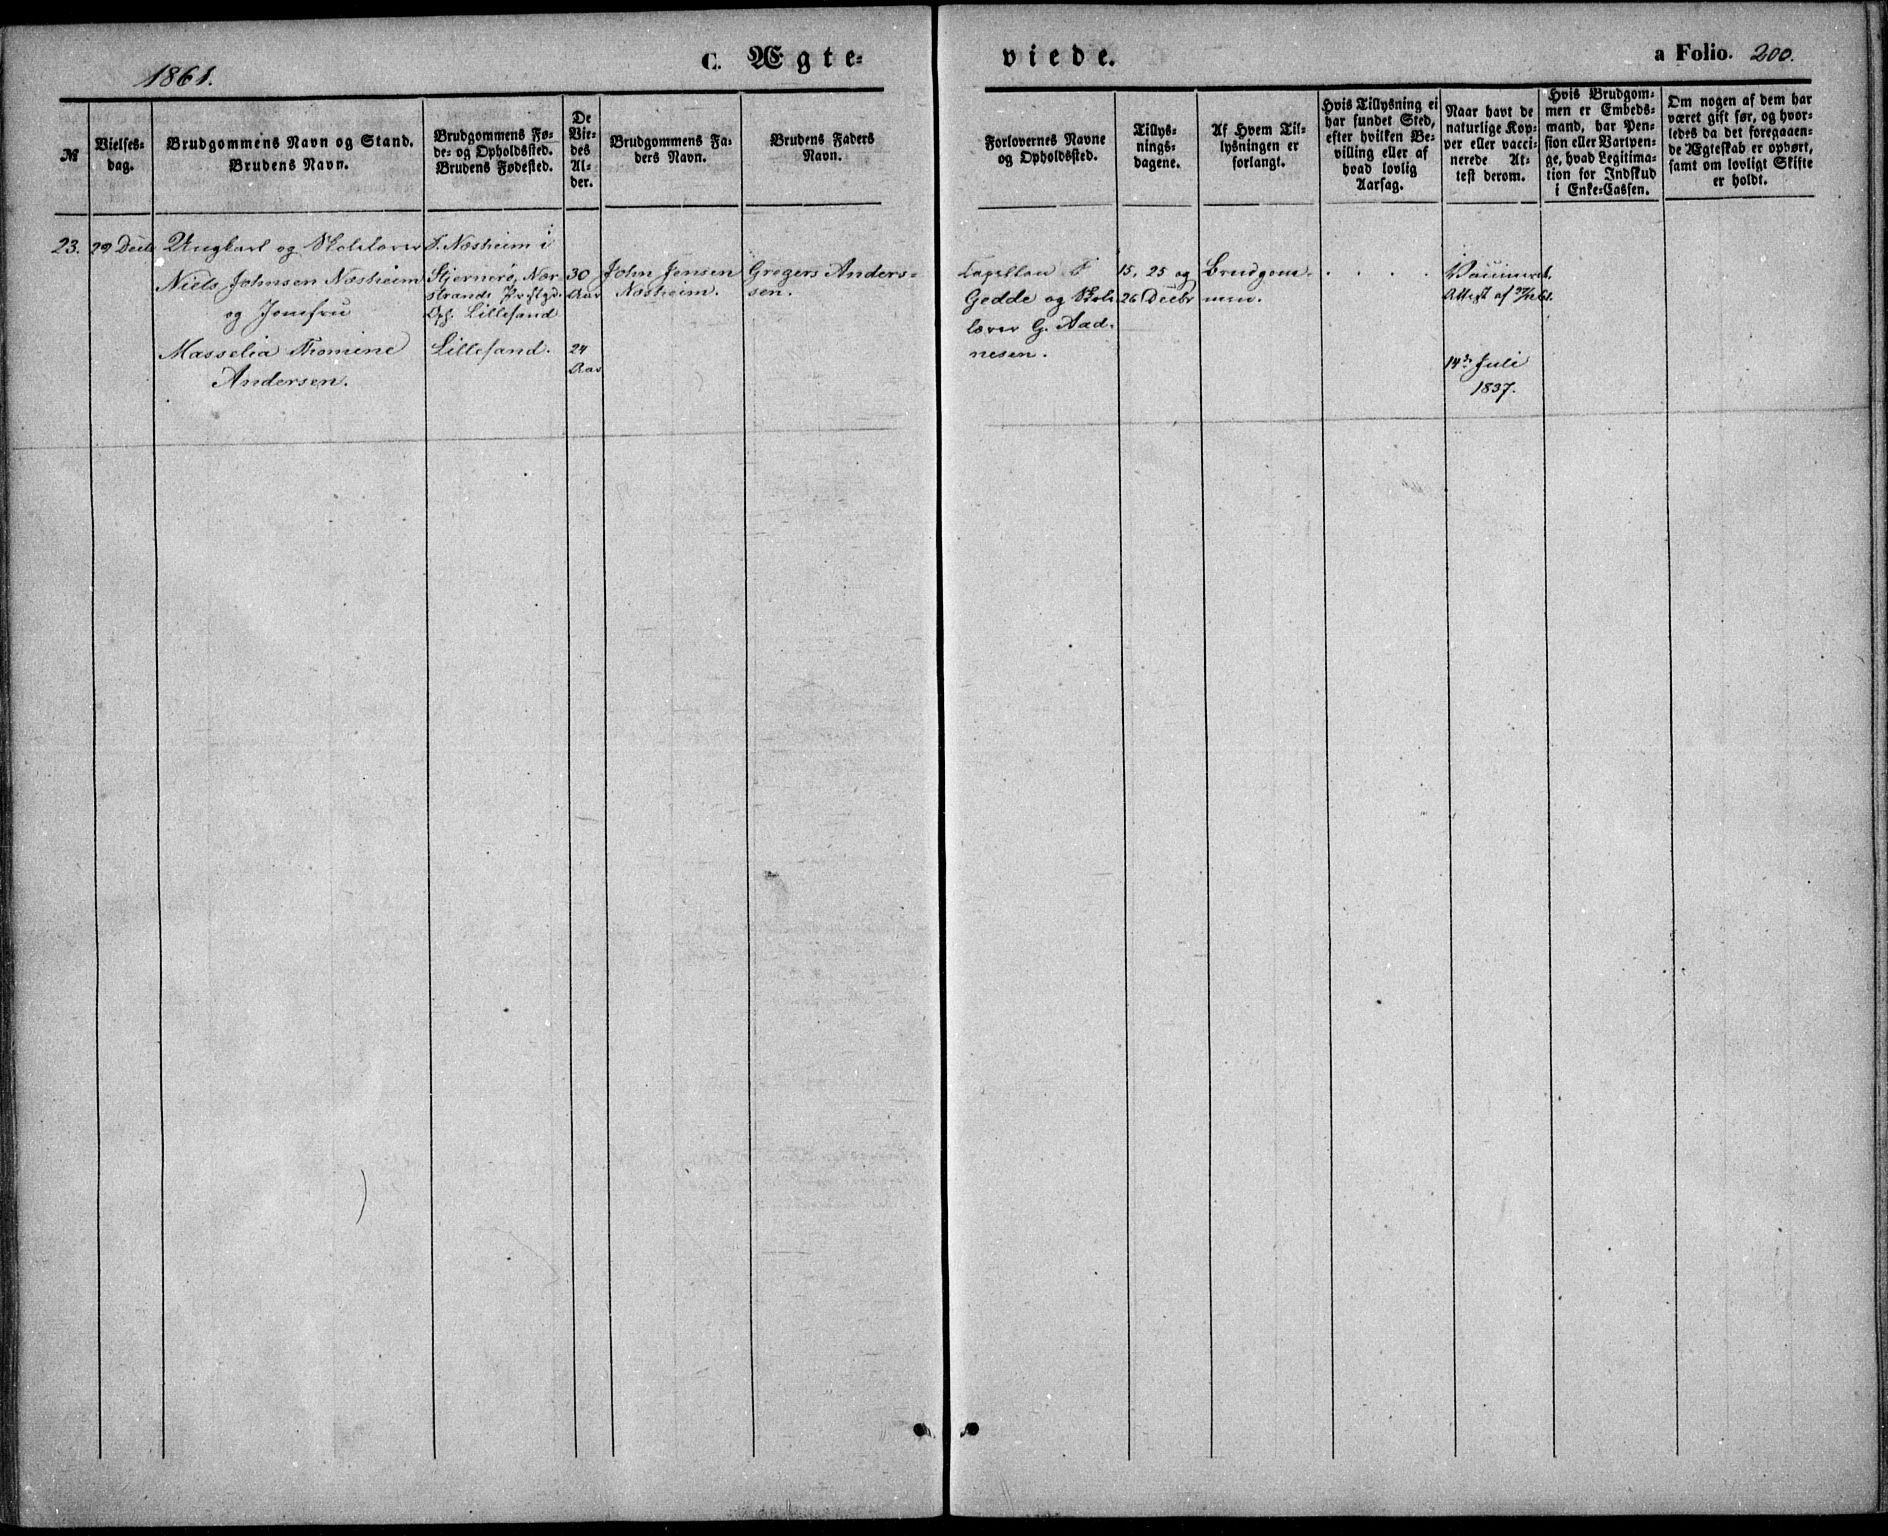 1861.
C. Ægte-
viede.
a Folio. 200.
№
Vielses-
dag.
Brudgommens Navn og Stand.
Brudens Navn.
Brudgommens Fø-
de- og Opholdssted.
Brudens Fødested.
De
Vie-
des
Al-
der.
Brudgommens Fa-
ders Navn.
Brudens Faders
Navn.
Forlovernes Navne
og Opholdssted.
Tillys-
nings-
dagene.
Af Hvem Til-
lysningen er
forlangt.
Hvis Tillysning ei
har fundet Sted,
efter hvilken Be-
villing eller af
hvad lovlig
Aarsag.
Naar havt de
naturlige Kop-
per eller vacci-
nerede At-
test derom.
Hvis Brudgom-
men er Embeds-
mand, har Pen-
sion eller Vartpen-
ge, hvad Legitima-
tion for Indskud
i Enke-Cassen.
Om nogen af dem har
været gift før, og hvor-
ledes da det foregaaen-
de Ægteskab er ophørt,
samt om lovligt Skifte
er holdt.
23.
29 Decb
Ungkarl og Skolelærer
Niels Johnsen Næsheim
og Jomfru
Masselia Thomine
Andersen.
F. Næsheim i
Stjernerø, Nær-
strands Præstgd.
Oph. Lillesand
Lillesand.
30
Aar
24
Aar
John Jensen
Næsheim.
Gregers Anders-
sen.
Capellan F
Gedde og Skole
lærer G. Aad-
nesen.
15, 25 og
26 Decbr
Brudgom-
men.
. . . .
Vaccineret,
Attest af
14de Juli
1837.